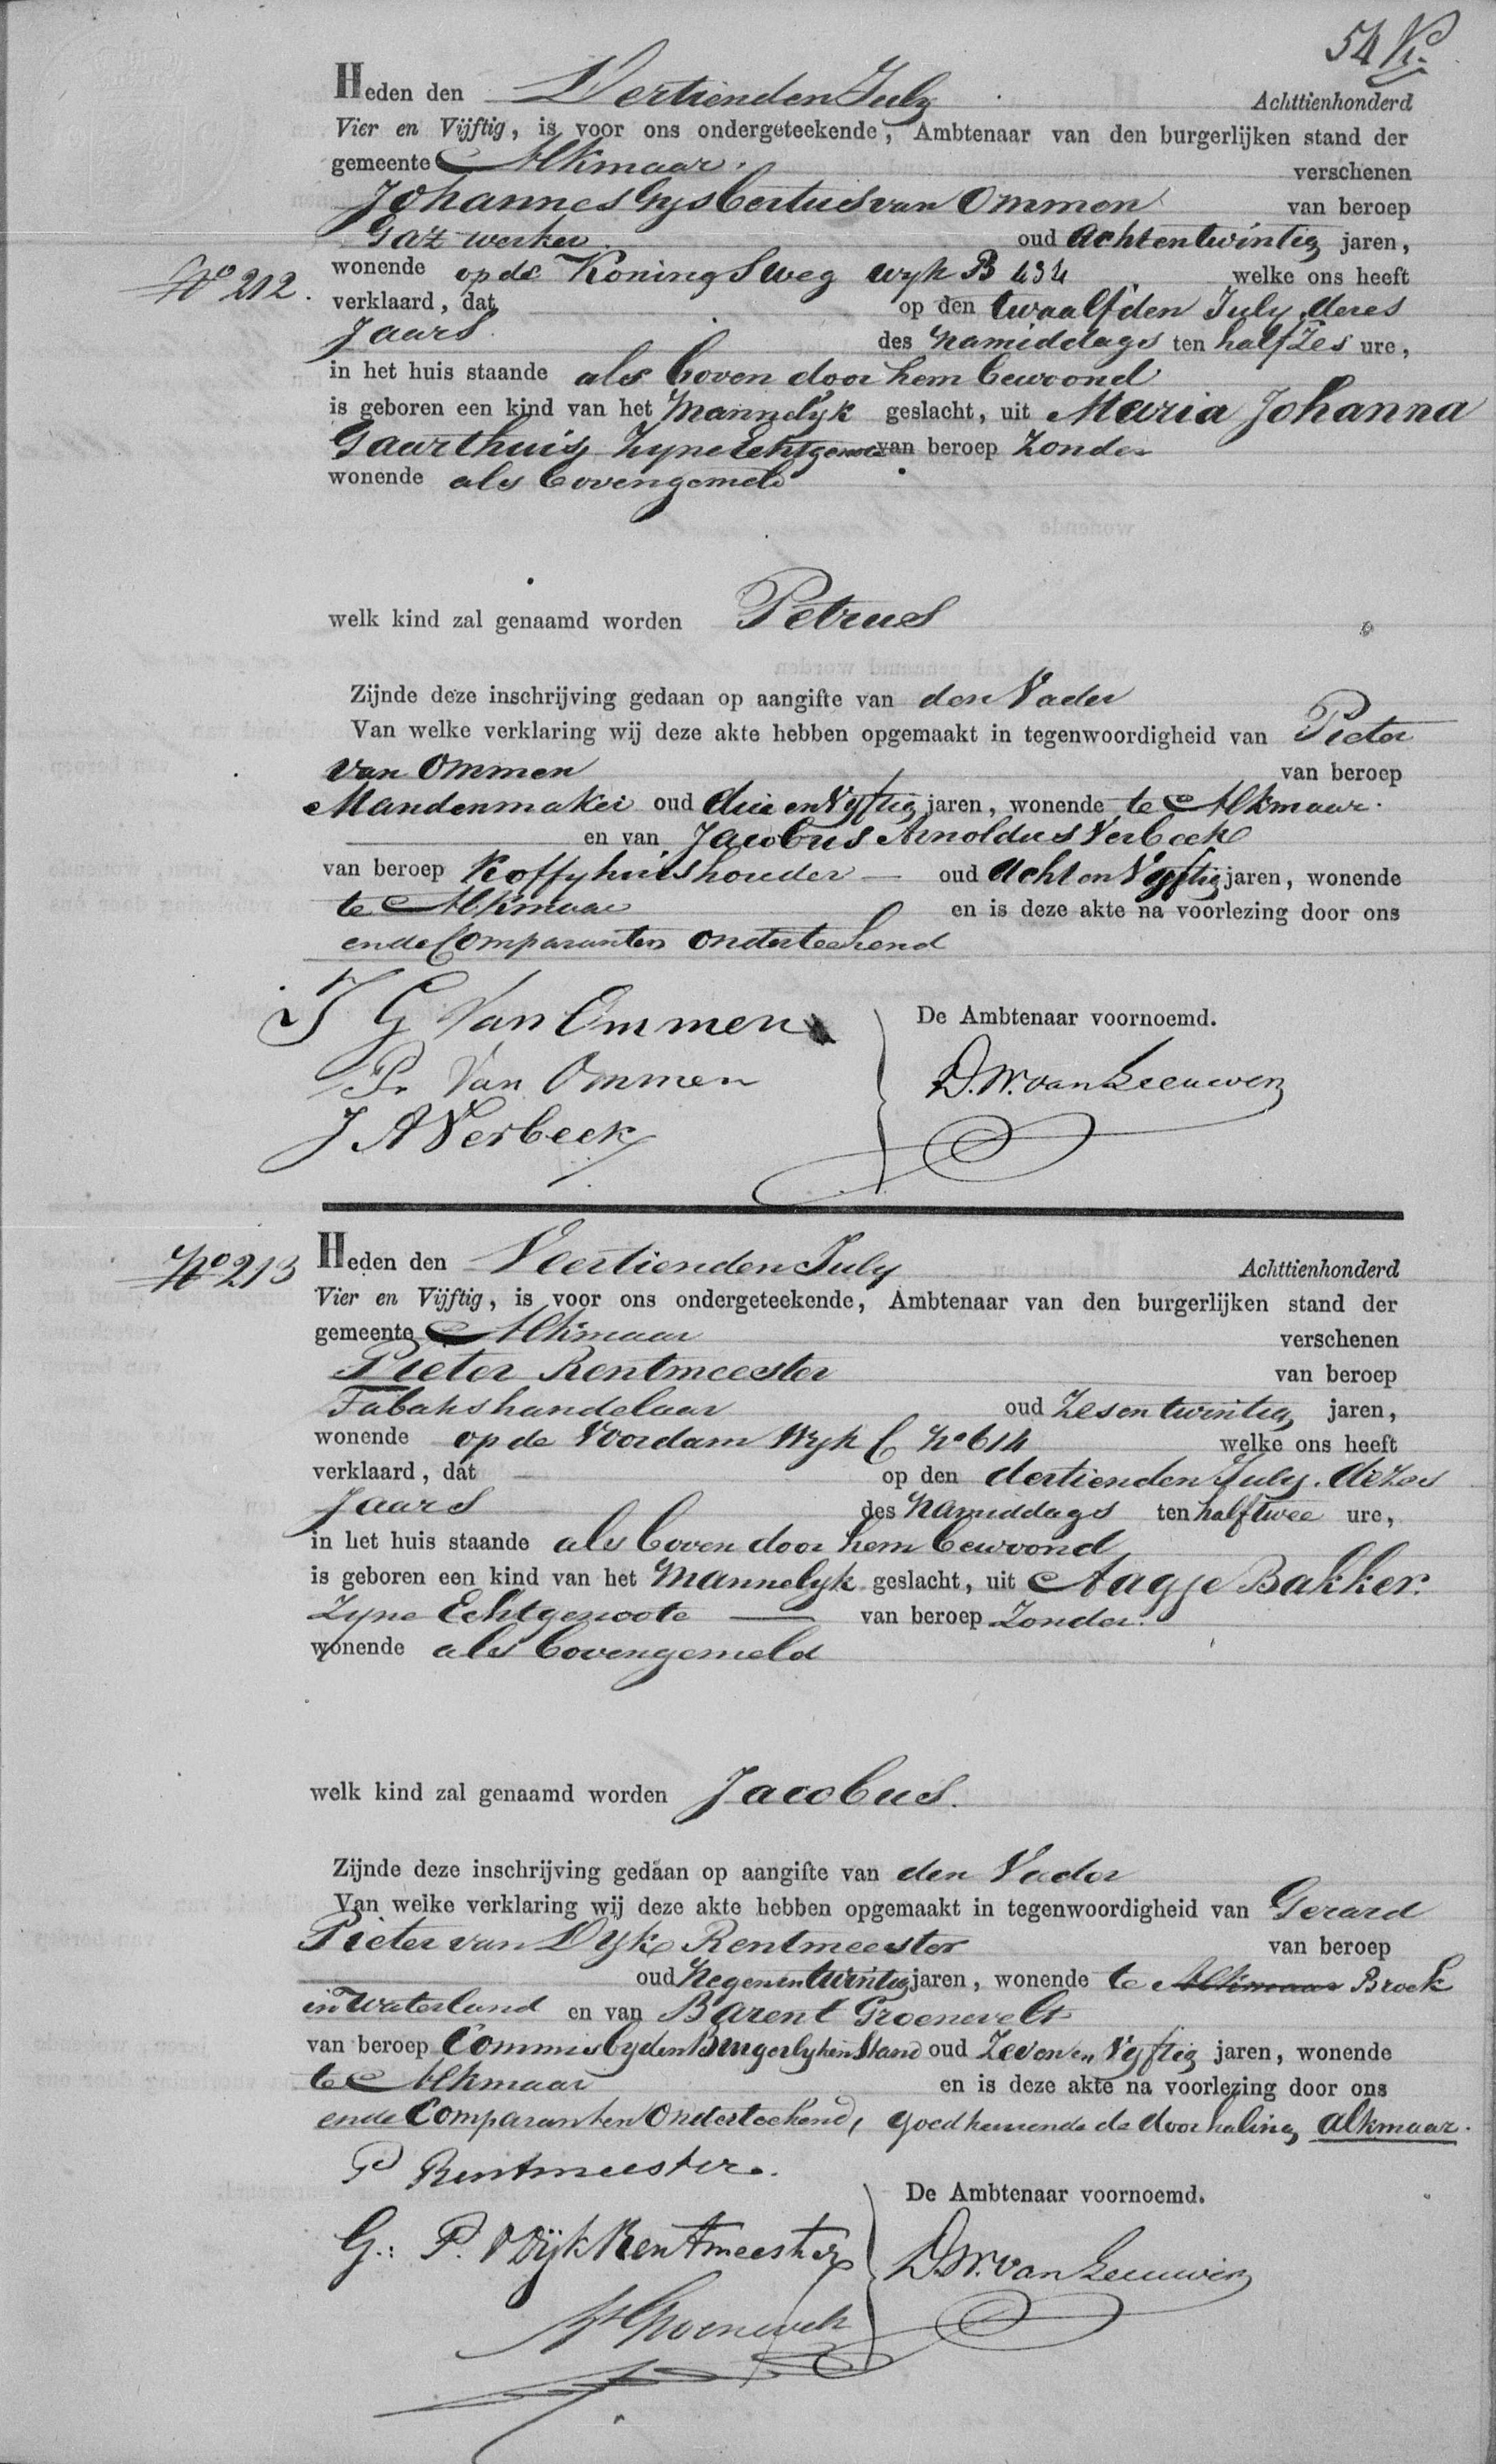 54
Heden den Dertienden July Achttienhonderd
Vier en Vijftig, is voor ons ondergeteekende, Ambtenaar van den burgerlijken stand der
gemeente Alkmaar. verschenen
Johannes Gysbertus van Ommen van beroep
Gaz werker oud Achtentwintig jaren,
No 212. wonende op de Koningsweg wyk B 434 welke ons heeft
verklaard, dat op den twaalfden July, deres
Jaars des namiddags ten half Zes ure,
in het huis staande als boven door hem bewoond
is geboren een kind van het Mannelyk geslacht, uit Maria Johanna
Gaarthuis, Zyne Echtgenoote van beroep Zonder
wonende als bovengemeld
welk kind zal genaamd worden Petrus
Zijnde deze inschrijving gedaan op aangifte van den Vader
Van welke verklaring wij deze akte hebben opgemaakt in tegenwoordigheid van Pieter
van Ommen van beroep
Mandenmaker oud drie en Vyftig jaren, wonende te Alkmaar.
en van Jacobus Arnoldus Verbeek
van beroep Koffyhuishouder — oud Acht en Vyftig jaren, wonende
te Alkmaar en is deze akte na voorlezing door ons
en de Comparanten onderteekend
J G Van Ommen De Ambtenaar voornoemd.
Pr Van Ommen D.W. van Leeuwen
J A Verbeek
No 213 Heden den Veertienden July Achttienhonderd
Vier en Vijftig, is voor ons ondergeteekende, Ambtenaar van den burgerlijken stand der
gemeente Alkmaar verschenen
Pieter Rentmeester van beroep
Tabakshandelaar oud Zesentwintig jaren,
wonende op de Voordam Wyk C No 614 welke ons heeft
verklaard, dat — op den dertienden July. dezes
Jaars des Namiddags ten half twee ure,
in het huis staande als boven door hem bewoond
is geboren een kind van het Mannelyk geslacht, uit Aagje Bakker.
Zyne Echtgenoote — van beroep Zonder.
wonende als bovengemeld
welk kind zal genaamd worden Jacobus.
Zijnde deze inschrijving gedaan op aangifte van den Vader
Van welke verklaring wij deze akte hebben opgemaakt in tegenwoordigheid van Gerard
Pieter van Dyk Rentmeester van beroep
oud Negenentwintig jaren, wonende te Alkmaar Broek
in Waterland en van Barent Groenevelt
van beroep Commies by den Burgerlyken Stand oud Zeven en Vyftig jaren, wonende
te Alkmaar en is deze akte na voorlezing door ons
en de Comparanten Onderteekend, goedkeurende de doorhaling Alkmaar.
P Rentmeester. De Ambtenaar voornoemd.
G: P. v Dijk Rentmeester D.W. van Leeuwen